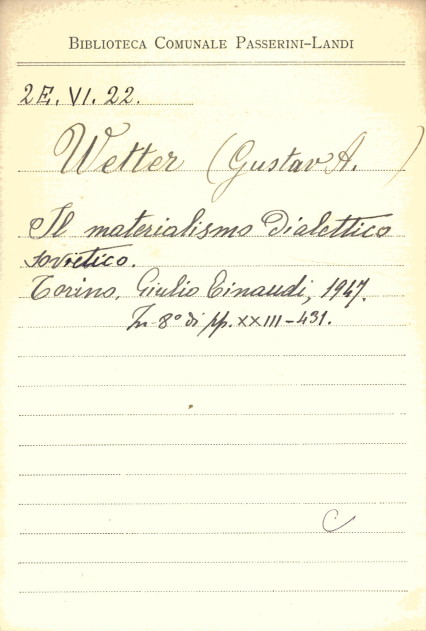 BIBLIOTECA COMUNALE PASSERINI-LANDI
2E. VI. 22.
Wetter (Gustav A. )
Il materialismo dialettico
sovietico.
Torino, Giulio Einaudi, 1947.
In 8º di pp. XXIII-431.
C